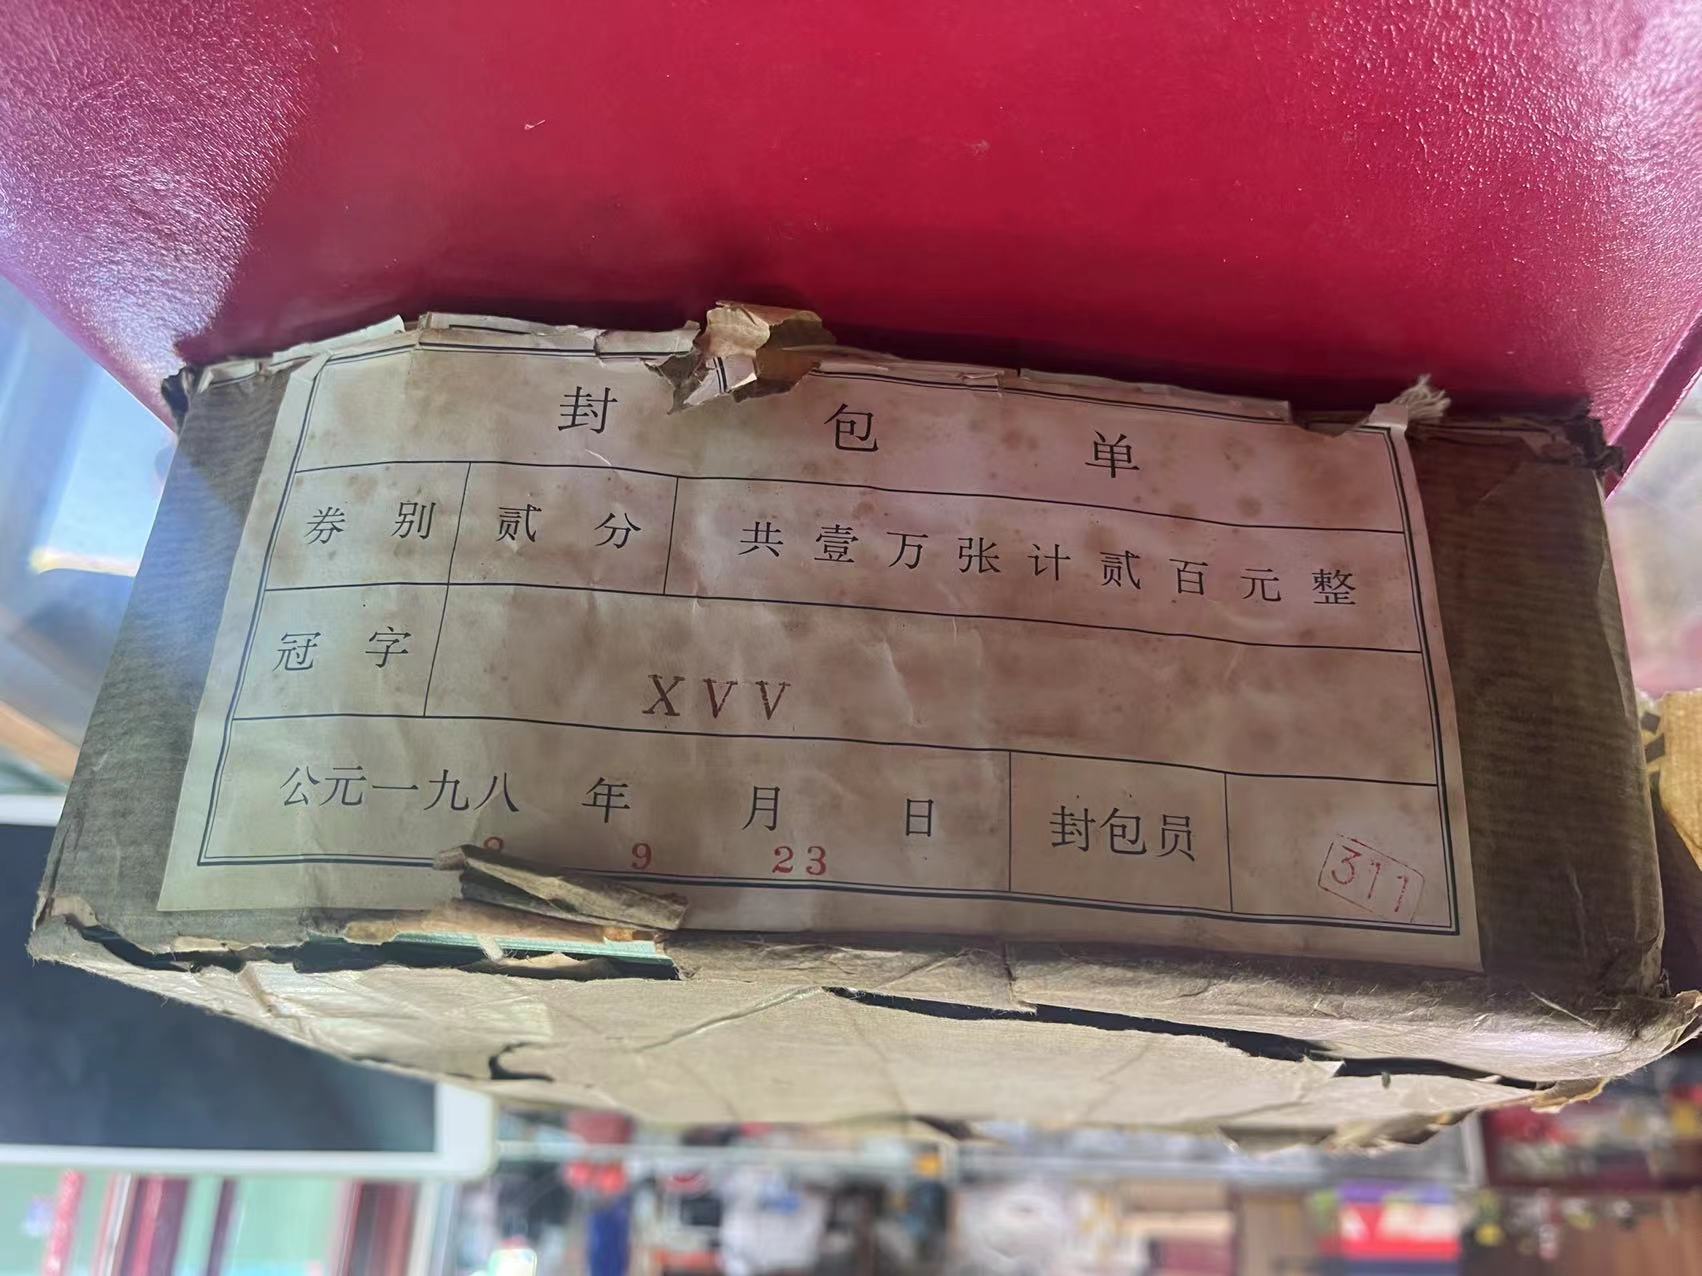 封包单
券别 贰分 共壹万张计贰百元整
冠字 XVV
公元一九八 年 月 日 封包员
9 23 311